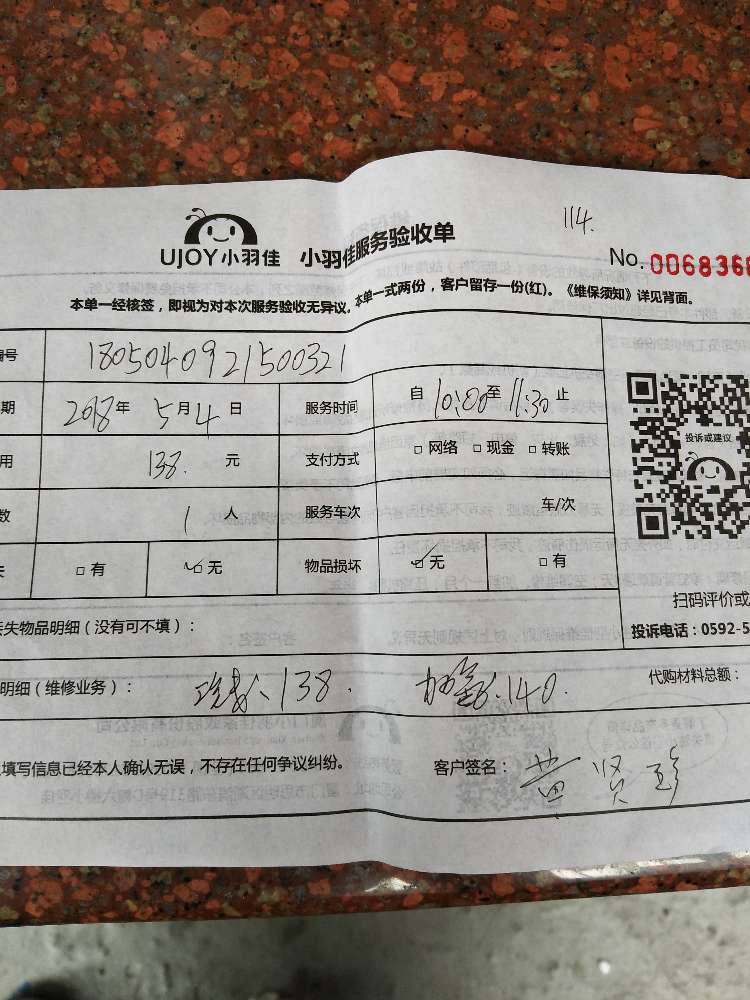 114.
UJOY小羽佳 小羽佳服务验收单 No. 0068366
本单一经核签，即视为对本次服务验收无异议，本单一式两份，客户留存一份(红)。《维保须知》详见背面。
编号 1805040921500321
期 2018年 5月4日 服务时间 自10:00至11:30止
用 138. 元 支付方式 □网络 □现金 □转账
数 1 人 服务车次 车/次
□有 ☑无 物品损坏 ☑无 □有
投诉或建议
扫码评价或
丢失物品明细（没有可不填）：
投诉电话：0592-5
明细（维修业务）： 138. 140. 代购材料总额：
填写信息已经本人确认无误，不存在任何争议纠纷。 客户签名： 黄贤珍